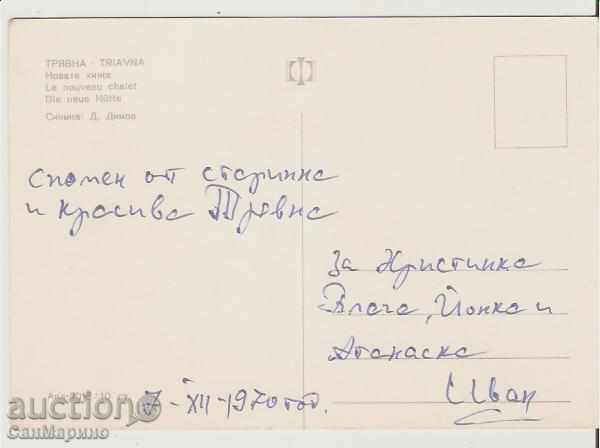 ТРЯВНА - TRIAVNA
Новата хижа
Le nouveau chalet
Die neue Hütte
Снимка: Д. Димов
Спомен от старинна
и красива Трявна
За Христинка
Влага, Йонка и
Атанаска
Иван
7-XII-1970 год.
auction
СанМарино